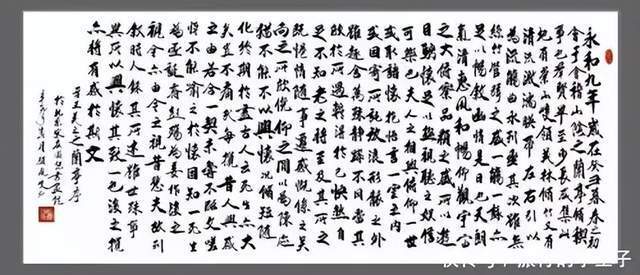 永和九年歲在癸丑暮春之初
會于會稽山陰之蘭亭修禊
事也群賢畢至少長咸集此
地有崇山峻領茂林修竹又有
清流激湍暎帶左右引以
為流觴曲水列坐其次雖無
絲竹管弦之盛一觴一詠亦
足以暢敘幽情是日也天朗
氣清惠風和暢仰觀宇宙
之大俯察品類之盛所以遊
目騁懷足以極視聽之娛信
可樂也夫人之相與俯仰一世
或取諸懷抱悟言一室之內
或因寄所託放浪形骸之外
雖趣舍萬殊靜躁不同當其
欣於所遇暫得於己快然自
足不知老之將至及其所之
既惓情隨事遷感慨係之矣
向之所欣俛仰之間以為陳迹
猶不能不以之興懷況脩短隨
化終期於盡古人云死生亦大
矣豈不痛哉每攬昔人興感
之由若合一契未嘗不臨文嗟
悼不能喻之於懷固知一死生
為虛誕齊彭殤為妄作後之
視今亦由今之視昔悲夫故列
敘時人錄其所述雖世殊事
異所以興懷其致一也後之攬
亦將有感於斯文
王羲之蘭亭序